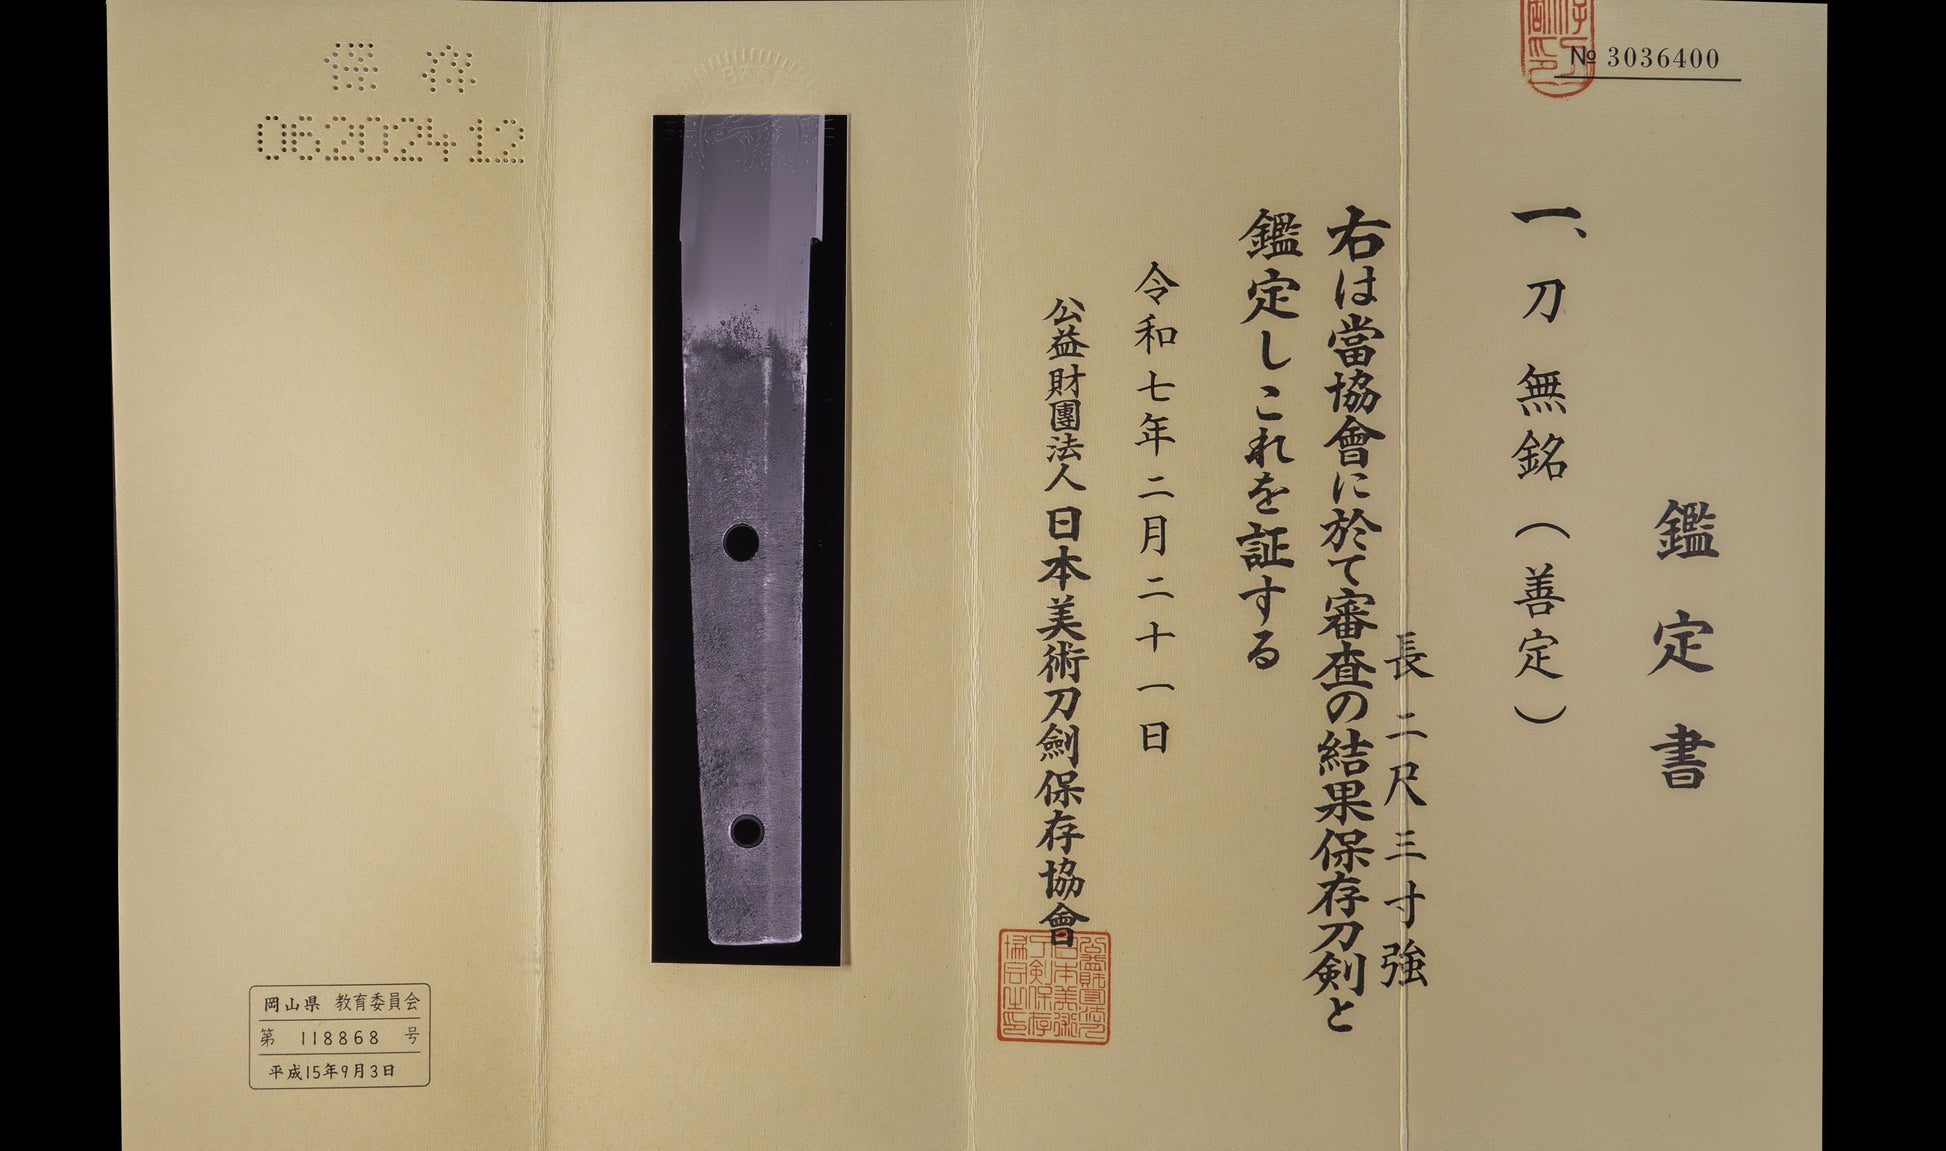 № 3036400
鑑定書
一、刀 無銘(善定)
長 二尺三寸強
右は當協會に於て審査の結果保存刀剣と
鑑定しこれを証する
令和七年二月二十一日
公益財團法人日本美術刀劍保存協會
保存
06202412
岡山県 教育委員会
第 118868 号
平成15年9月3日